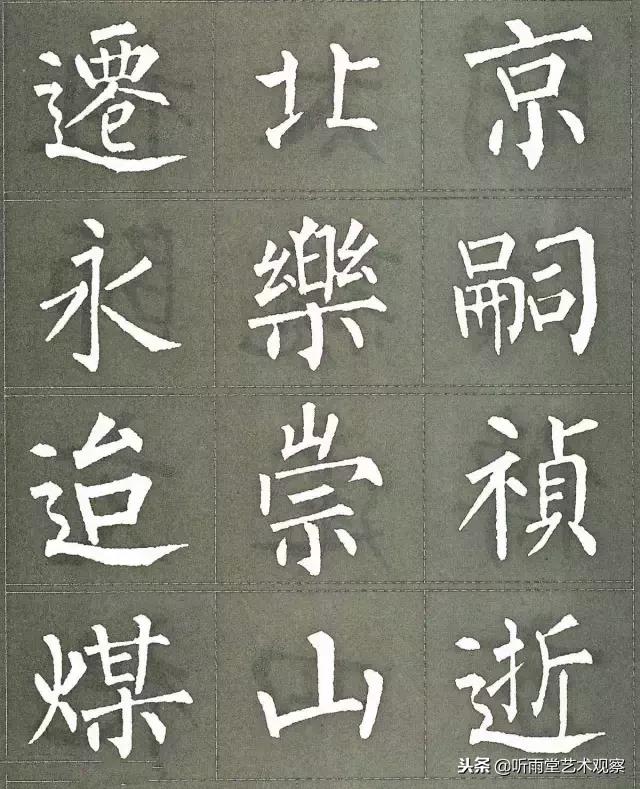 遷北京
永樂嗣
迨崇禎
煤山逝
头条 @听雨堂艺术观察